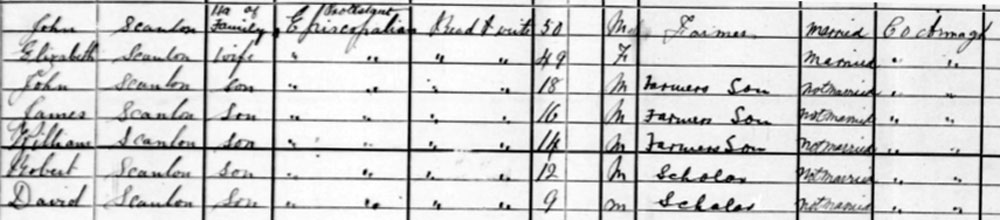 John Scanlon Hd of Family Protestant Episcopalian Read & write 50 M Farmer Married Co Armagh
Elizabeth Scanlon Wife " " " " 49 F Married " "
John Scanlon Son " " " " 18 M Farmers Son Not Married " "
James Scanlon Son " " " " 16 M Farmers Son Not Married " "
William Scanlon Son " " " " 14 M Farmers Son Not Married " "
Robert Scanlon Son " " " " 12 M Scholar Not Married " "
David Scanlon Son " " " " 9 M Scholar Not Married " "